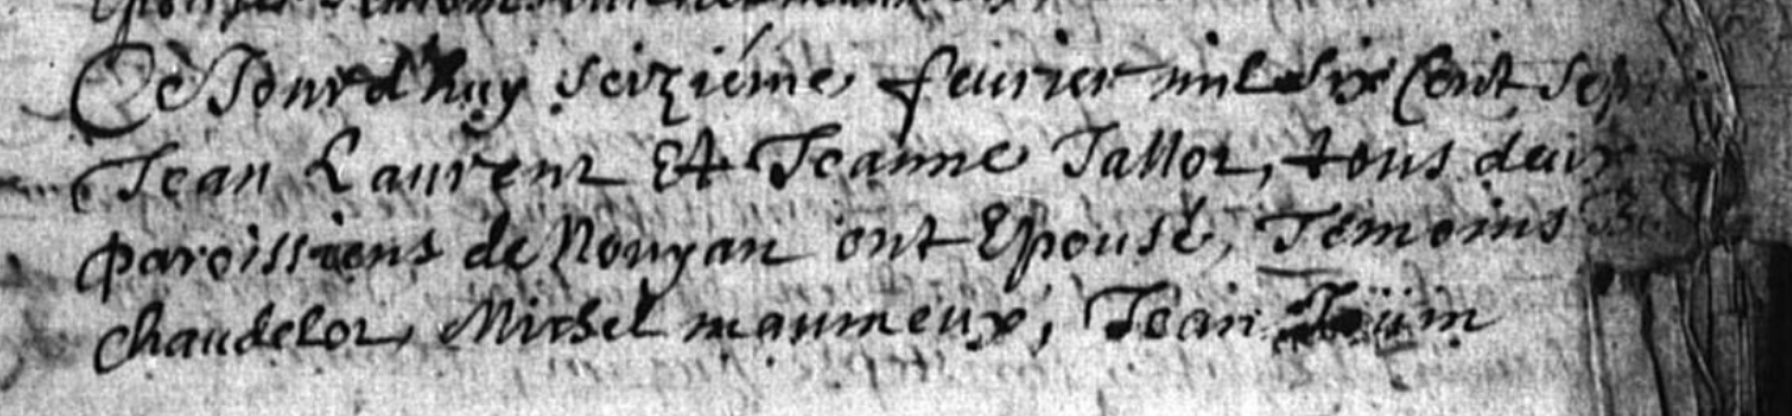 Ce Jourd'huy seizième feurier mil six Cent sep
Jean Laurent Et Jeanne Tallot, tous deux
paroissiens de Nouyan ont Epousé, Temoins
chaudelot, Michel maumeux, Jean